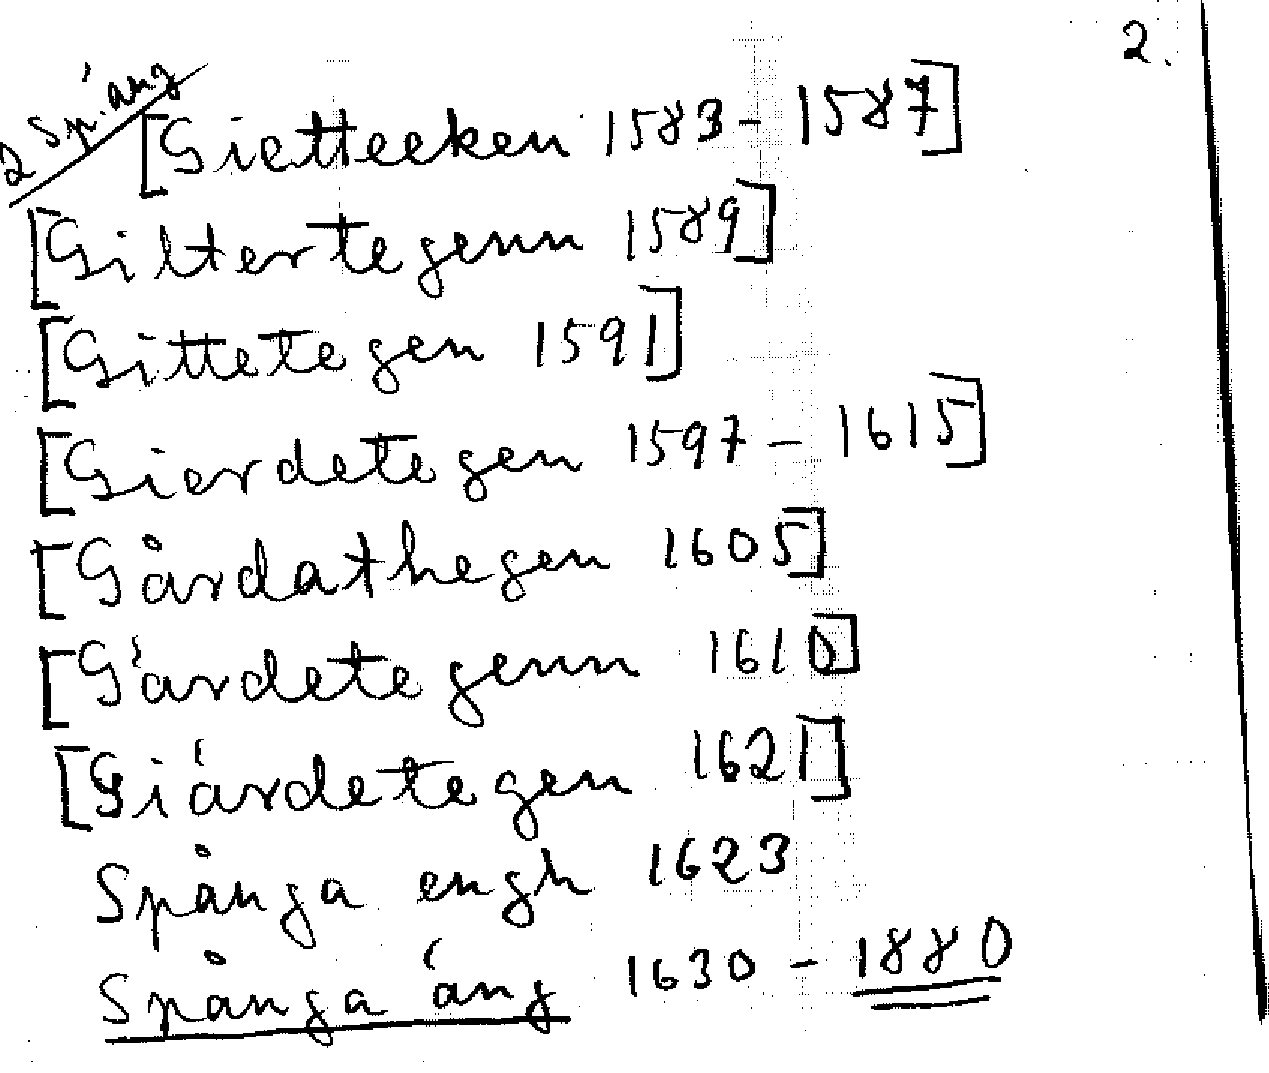 2.
2 Sp. äng
[Gietteeken 1583 - 1587]
[Giltertegenn 1589]
[Gittetegen 1591]
[Gierdetegen 1597 - 1615]
[Gårdathegen 1605]
[Gärdetegenn 1610]
[Giärdetegen 1621]
Spånga engh 1623
Spånga äng 1630 - 1880